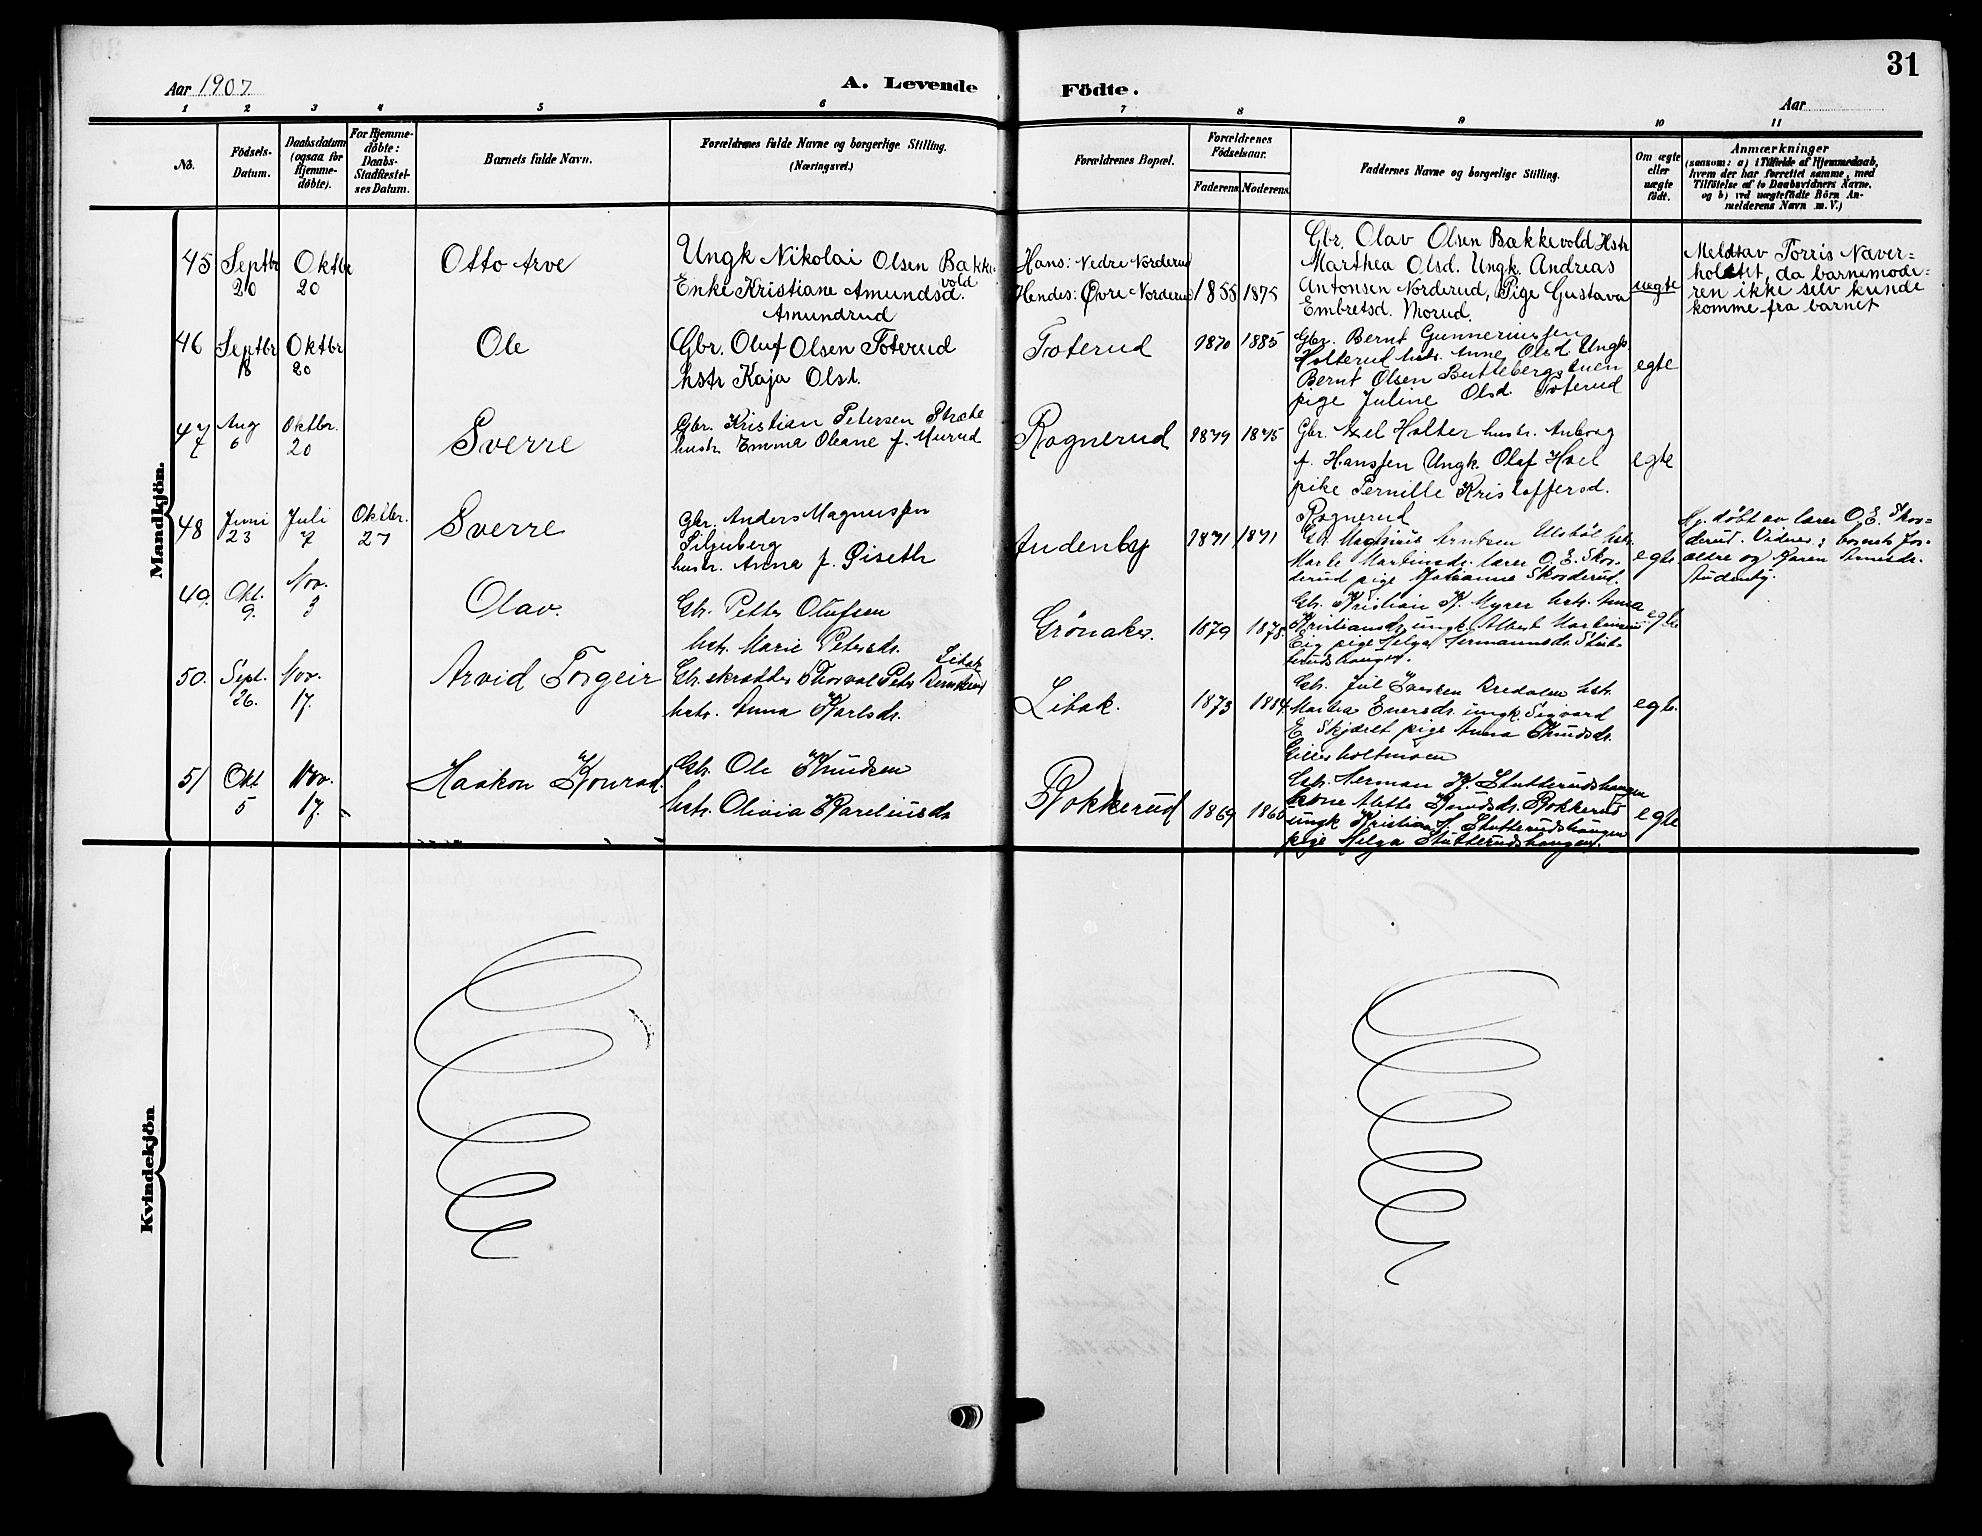 31
Aar 1907
A. Levende Födte.
Aar
1 2 3 4 5 6 7 8 9 10 11
No.
Födsels-Datum.
Daabsdatum (ogsaa for Hjemme-döbte).
For Hjemme-döbte: Daabs-Stadfæstel-ses Datum.
Barnets fulde Navn.
Forældrenes fulde Navne og borgerlige Stilling.
(Næringsvei.)
Forældrenes Bopæl.
Forældrenes Födselsaar.
Faderens. Moderens.
Faddernes Navne og borgerlige Stilling.
Om ægte eller uægte födt.
Anmærkninger
(saasom: a) i Tilfælde af Hjemmedaab,
hvem der har forrettet samme, med
Tilföielse af to Daabsvidners Navne.
og b) ved uægtefödte Börn An-
melderens Navn m. V.)
Mandkjön.
45 Septbr 20 Oktbr 20
Otto Arve
Ungk Nikolai Olsen Bakke-
vold
Enke Kristiane Amundsd.
Amundrud
Hans: Nedre Norderud
Hendes: Øvre Norderud
1855 1875
Gbr. Olav Olsen Bakkevold Hstr
Marthea Olsd. Ungk. Andreas
Antonsen Norderud, Pige Gustava
Embretsd. Morud.
uegte
Meldt av Torris Naver=
holtet, da barnemode=
ren ikke selv kunde
komme fra barnet
46 Septbr 18 Oktbr 20
Ole
Gbr. Oluf Olsen Toterud
hstr Kaja Olsd.
Toterud
1870 1885
Gbr. Bernt Gunneriussen
Holterud hstr. Anne Olsd. Ungk
Bernt Olsen Buttebergstuen
pige Juline Olsd. Toterud
egte
47 Aug 6 Oktbr. 20
Sverre
Gbr. Kristian Petersen
hustr. Emma Oleane f. Murud
Rognerud
1879 1875
Gbr. Axel Holter hustr. Anborg
f. Hanssen Ungk. Olaf Hoel
pike Pernille Kristoffersd.
Rognerud
egte
48 Juni 23 Juli 7 Oktbr. 27
Sverre
Gbr. Anders Magnussen
hustr. Anna f. Giseth
Audenby
1871 1871
Marte Martinsdr. lærer O. E. Skos-
derud pige Johanna Skosderud.
egte
Hj. døbt av lærer O. E. Skos=
derud. Vidner: barnets for-
ældre og Karen
Audenby.
49. Okt. 9. Nov. 3
Olav.
Gbr. Petter Olufsen
hstr. Marie Petersdr.
Grønaker.
1879 1878.
Gbr. Kristian K. Myrer hstr. Anna
Kristiansdr. ungk. Albert Martinius
Eig pige Helga Hermannsdr. Stut-
terudshaugen.
egte
50. Sept. 26. Nov. 17.
Arvid Torgeir
Libak
Gbr. skrædder Thorval Peter
hstr. Anna Karlsdr.
Libak.
1873 1884
Gbr. Juul Iversen Bredalen hstr.
Martha Enersdr. ungk. Sigvard
E. Skjæret pige Anna Knudsdr.
Gillesholtmoen
egte.
51 Okt 5 Nov. 17.
Haakon Konrad.
Gbr. Ole Knudsen
hstr. Olivia Kareliusdr.
Rokkerud
1869 1860
Gbr. Herman K. Stutterudshaugen
kone Mette Knudsdr. Rokkerud
ungk Kristian H. Stutterudshaugen
pige Helga Stutterudshaugen.
egte
Kvindekjön